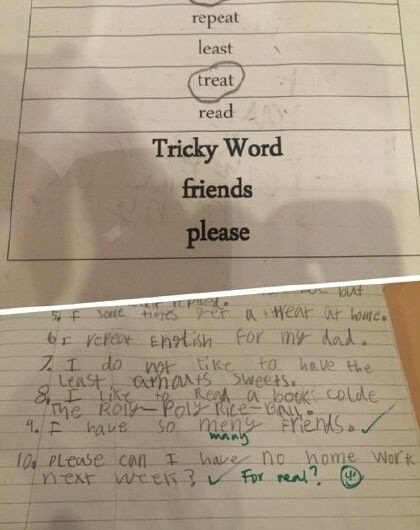 repeat
least
treat
read
Tricky Word
friends
please
replied. but
5. I some times get a treat at home.
6. I repeat English for my dad.
7. I do not like to have the
least amants sweets.
8. I like to Read a book colde
The Roly-Poly Rice-Ball.
9. I have so meny Friends. ✓
many
10. please can I have no home work
next week? ✓ For real?